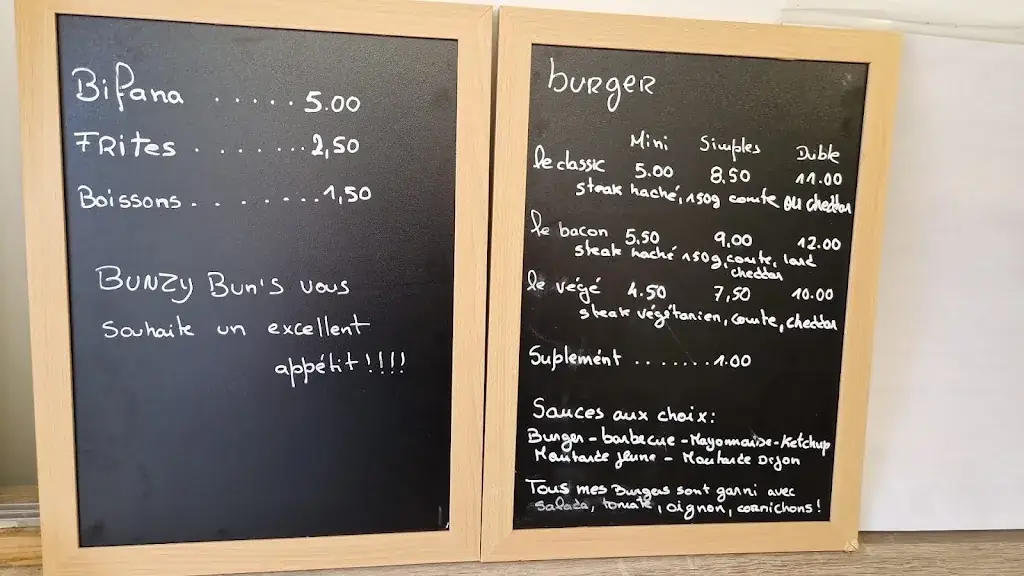 Bifana ..... 5.00
Frites ....... 2,50
Boissons ........ 1,50
Bunzy Bun's vous
souhaite un excellent
appétit!!!!
burger
Mini Simples Duble
le classic 5.00 8,50 11.00
steak haché, 150g comte ou cheddar
le bacon 5,50 9,00 12.00
steak haché 150g, comte, lard
cheddar
le végé 4.50 7,50 10.00
steak végétarien, comte, cheddar
Suplemént ....... 1.00
Sauces aux choix:
Burger - barbecue - Mayonnaise - Ketchup
Moutarde jeune - Moutarde Dijon
Tous mes Burgers sont garni avec
salada, tomate, oignon, cornichons!